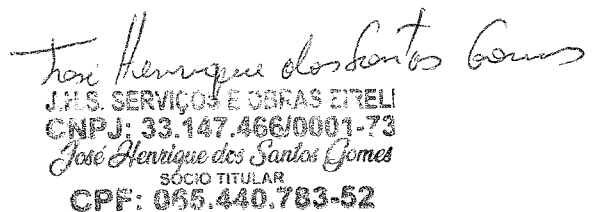 José Henrique dos Santos Gomes
J.H.S. SERVIÇOS E OBRAS EIRELI
CNPJ: 33.147.466/0001-73
José Henrique dos Santos Gomes
SÓCIO TITULAR
CPF: 065.440.783-52